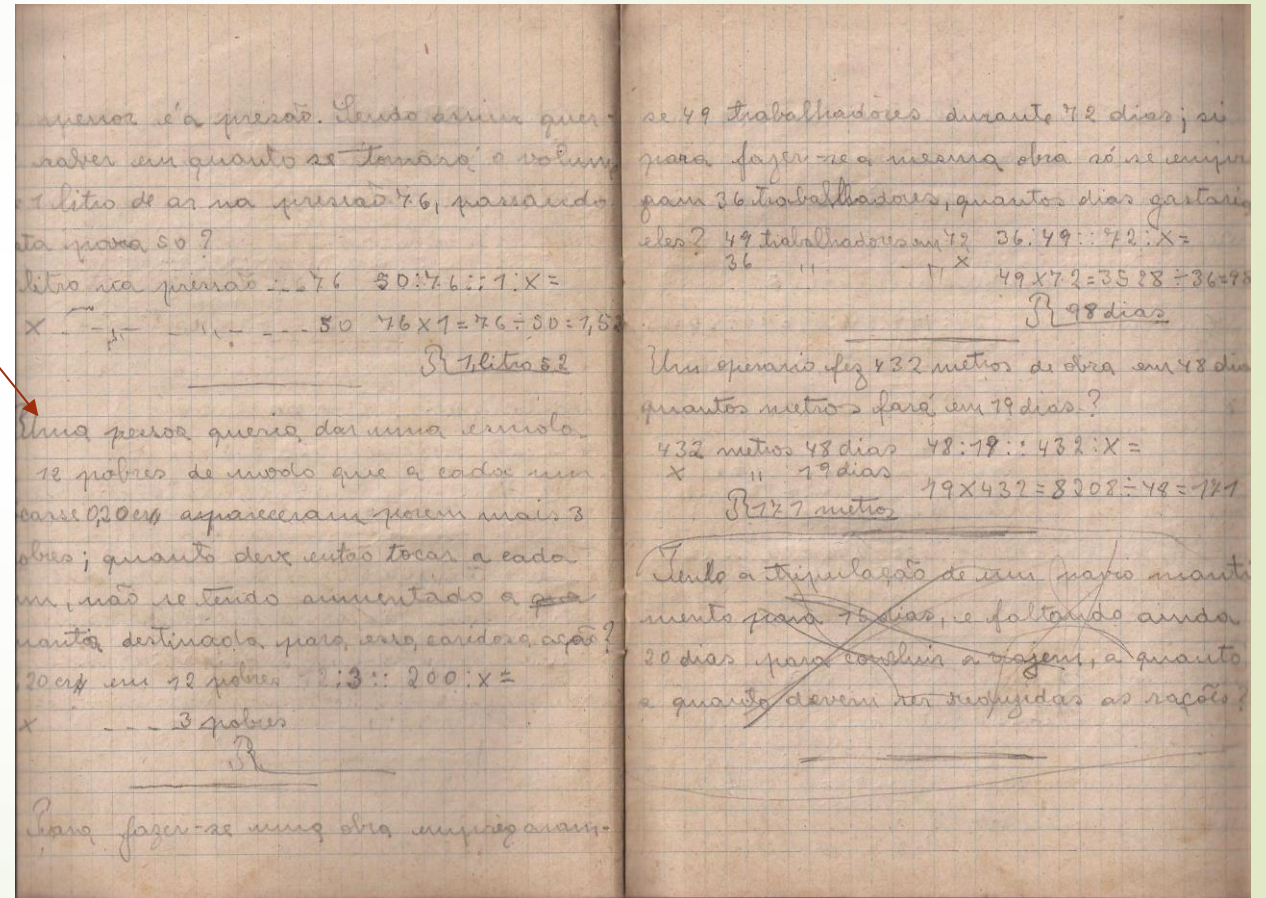 menor é a presão. Sendo assim quer-
saber em quanto se tornará o volum
1 litro de ar na presião 76, passando
ta para 50?
litro na presião ... 76 50:76::1:X=
X - -,,- - -,,- - - - - 50 76X1=76÷50=1,52
R 1,litro 52
Uma pessoa queria dar uma esmola
12 pobres de modo que a cada um
casse 0,20 apareceram porem mais 3
obres; quanto deve então tocar a cada
um, não se tendo aumentado a
nantia destinada para essa caridosa ação?
20 em 12 pobres 12:3::200:x=
x - - - - 3 pobres
R
Para fazer-se uma obra empregaram-
se 49 trabalhadores durante 72 dias; si
para fazer-se a mesma obra só se empre
gam 36 trabalhadores, quantos dias gastaria
eles? 49 trabalhadores em 72 36:49::72:X=
36 ,, - ,, X
49X72=3528÷36=98
R 98 dias
Um operario fez 432 metros de obra em 48 dia
quantos metros fará em 19 dias?
432 metros 48 dias 48:19::432:X=
X ,, 19 dias
19X432=8208÷48=171
R 171 metros
Tendo a tripulação de um navio manti
mento para 15 dias, e faltando ainda
20 dias para concluir a viajem, a quanto
e quanto devem ser reduzidas as rações?